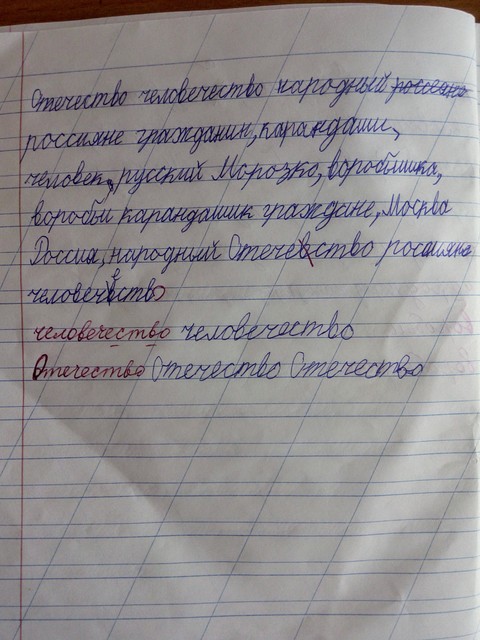 Отечество человечество народный россияне
россияне гражданин, карандаши,
человек, русский Морозко, воробьишка,
воробьи карандашик граждане, Москва
Россия, народный Отечевство россияне
человечество
человечество человечество
Отечество Отечество Отечество